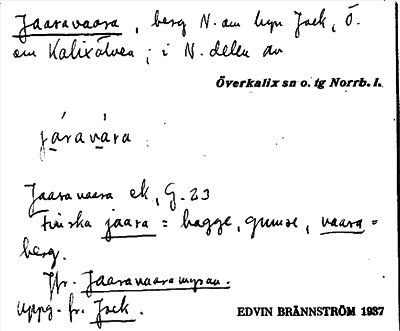 Jaaravaara, berg N. om byn Jock, Ö.
om Kalixälven; i N. delen av
Överkalix sn o. tg Norrb. l.
járavára
Jaaravaara ek, G. 23
Finska jaara = bagge, gumse, vaara =
berg.
Jfr. Jaaravaaramyran.
Uppg. fr. Jock.
EDVIN BRÄNNSTRÖM 1937